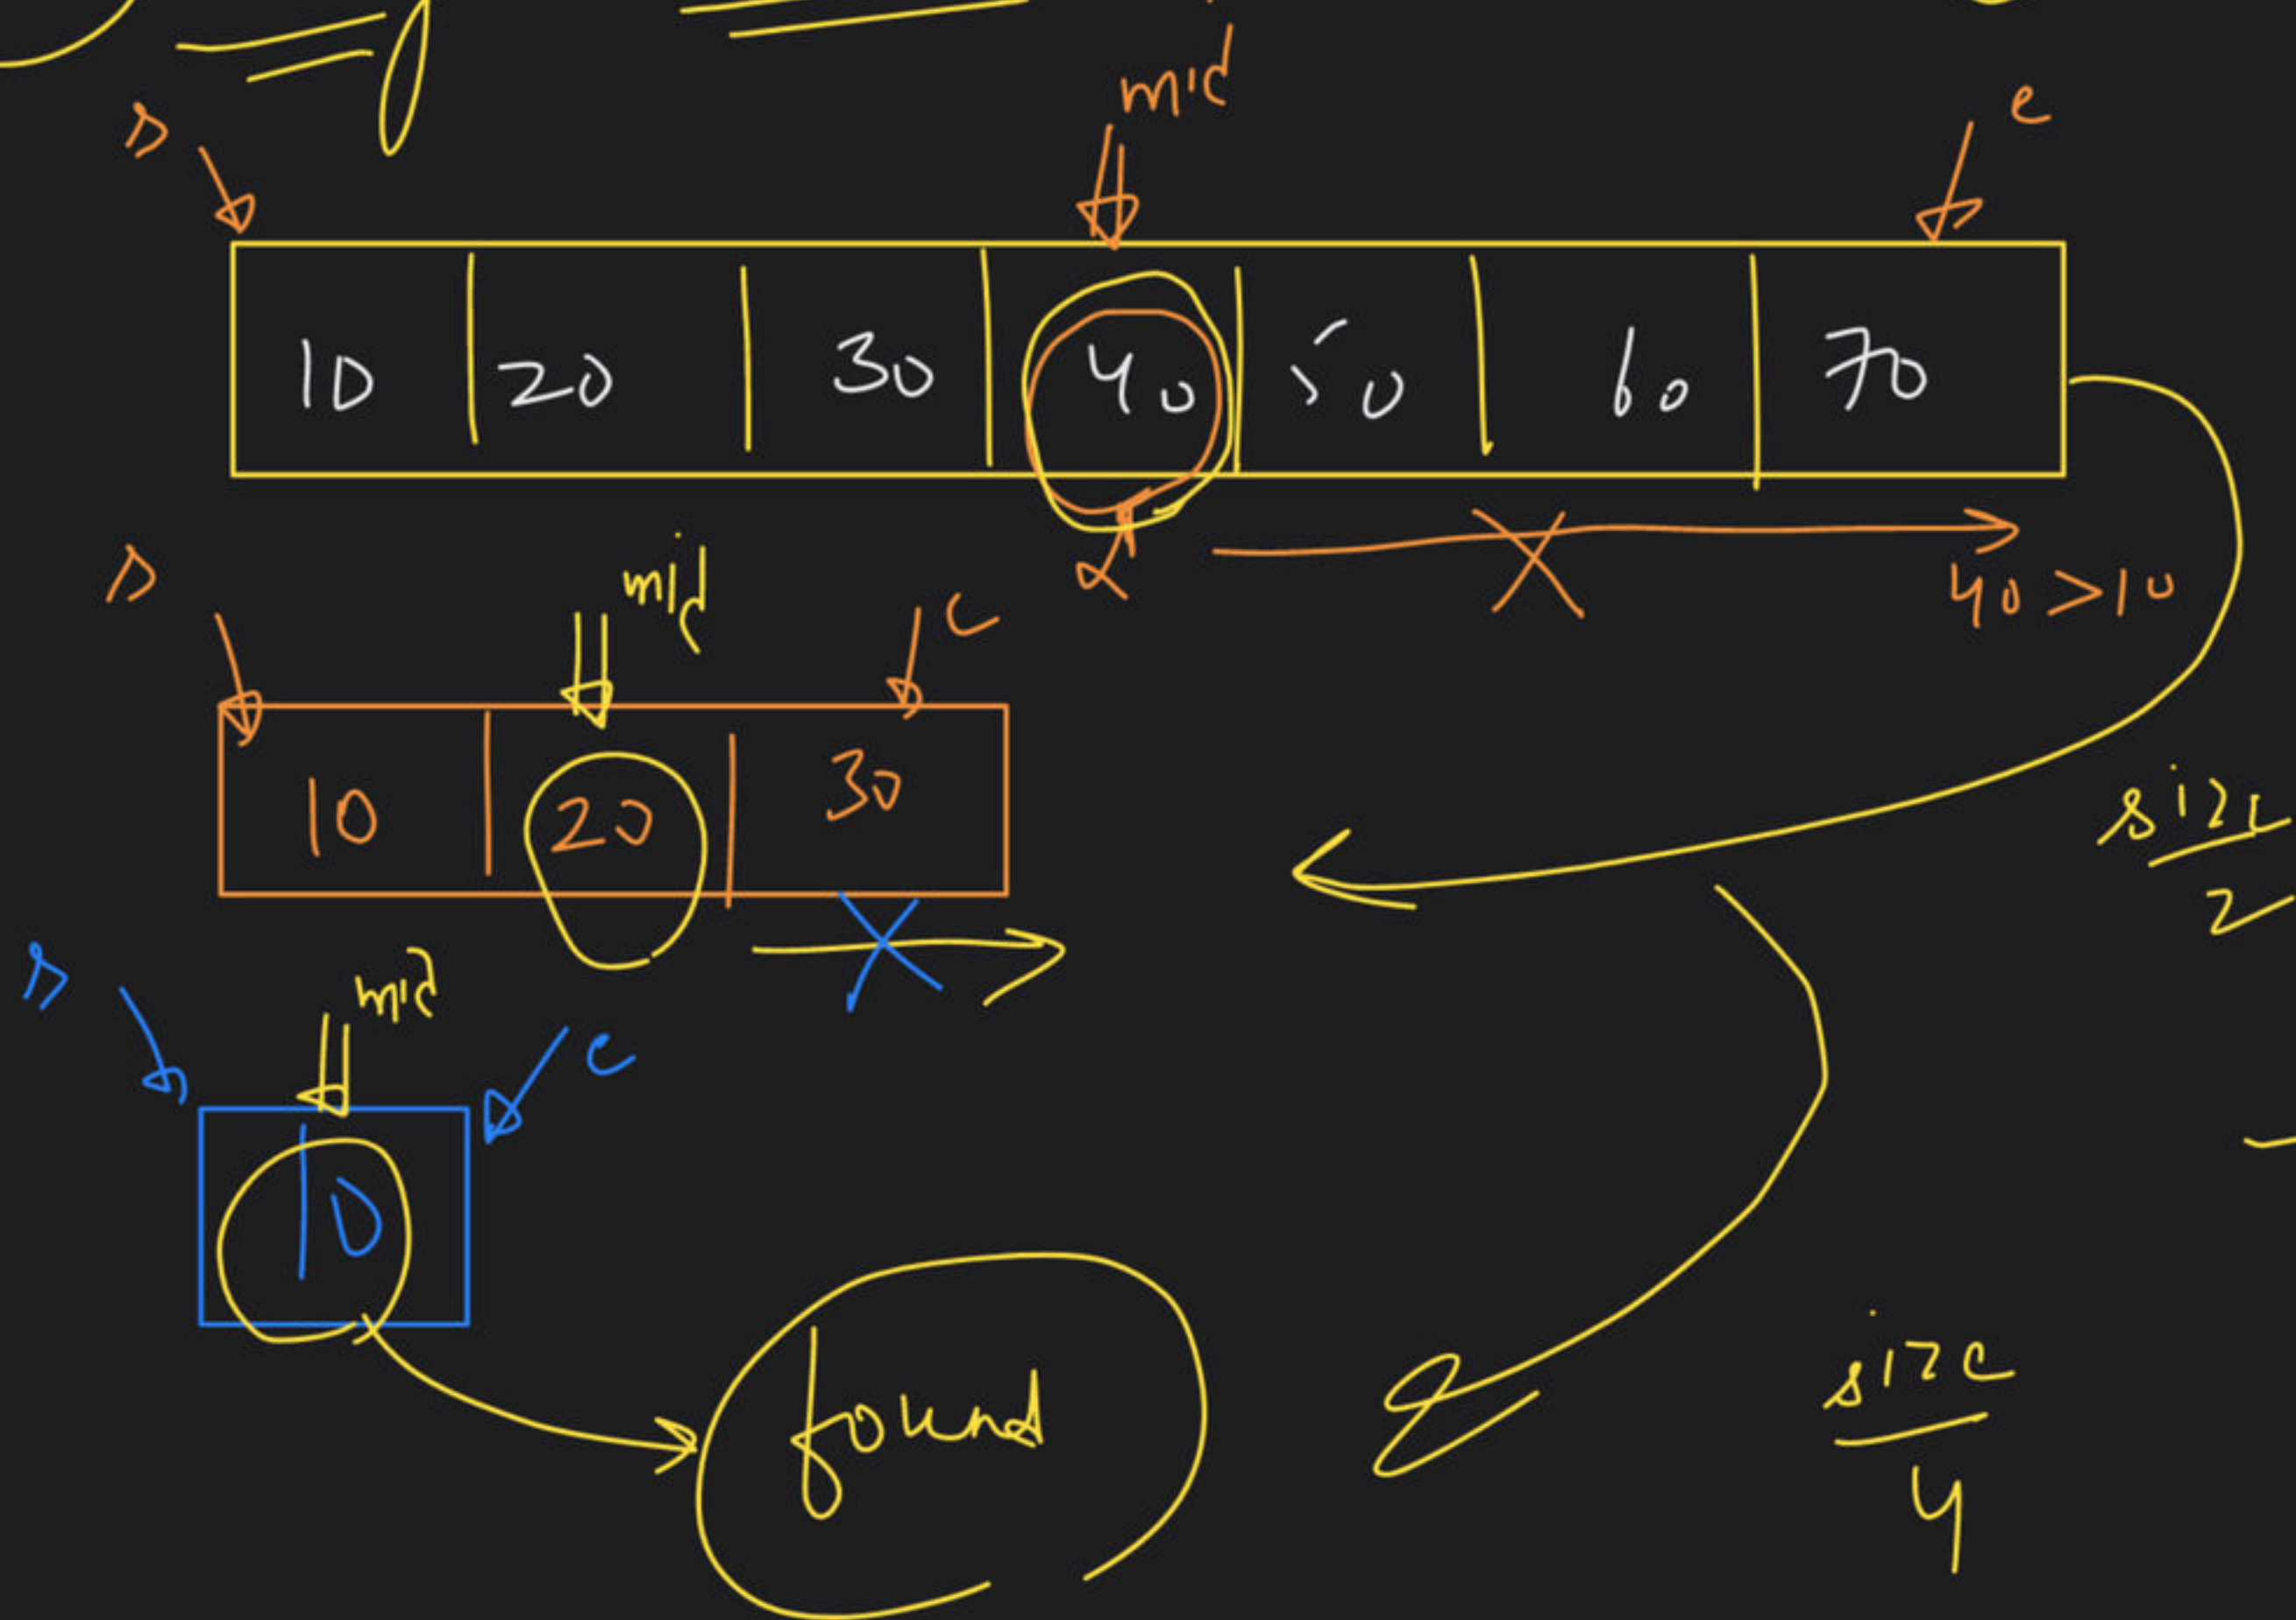 mid
s e
10 20 30 40 50 60 70
40 > 10
s mid e
10 20 30
size
2
s mid e
10
found
size
4